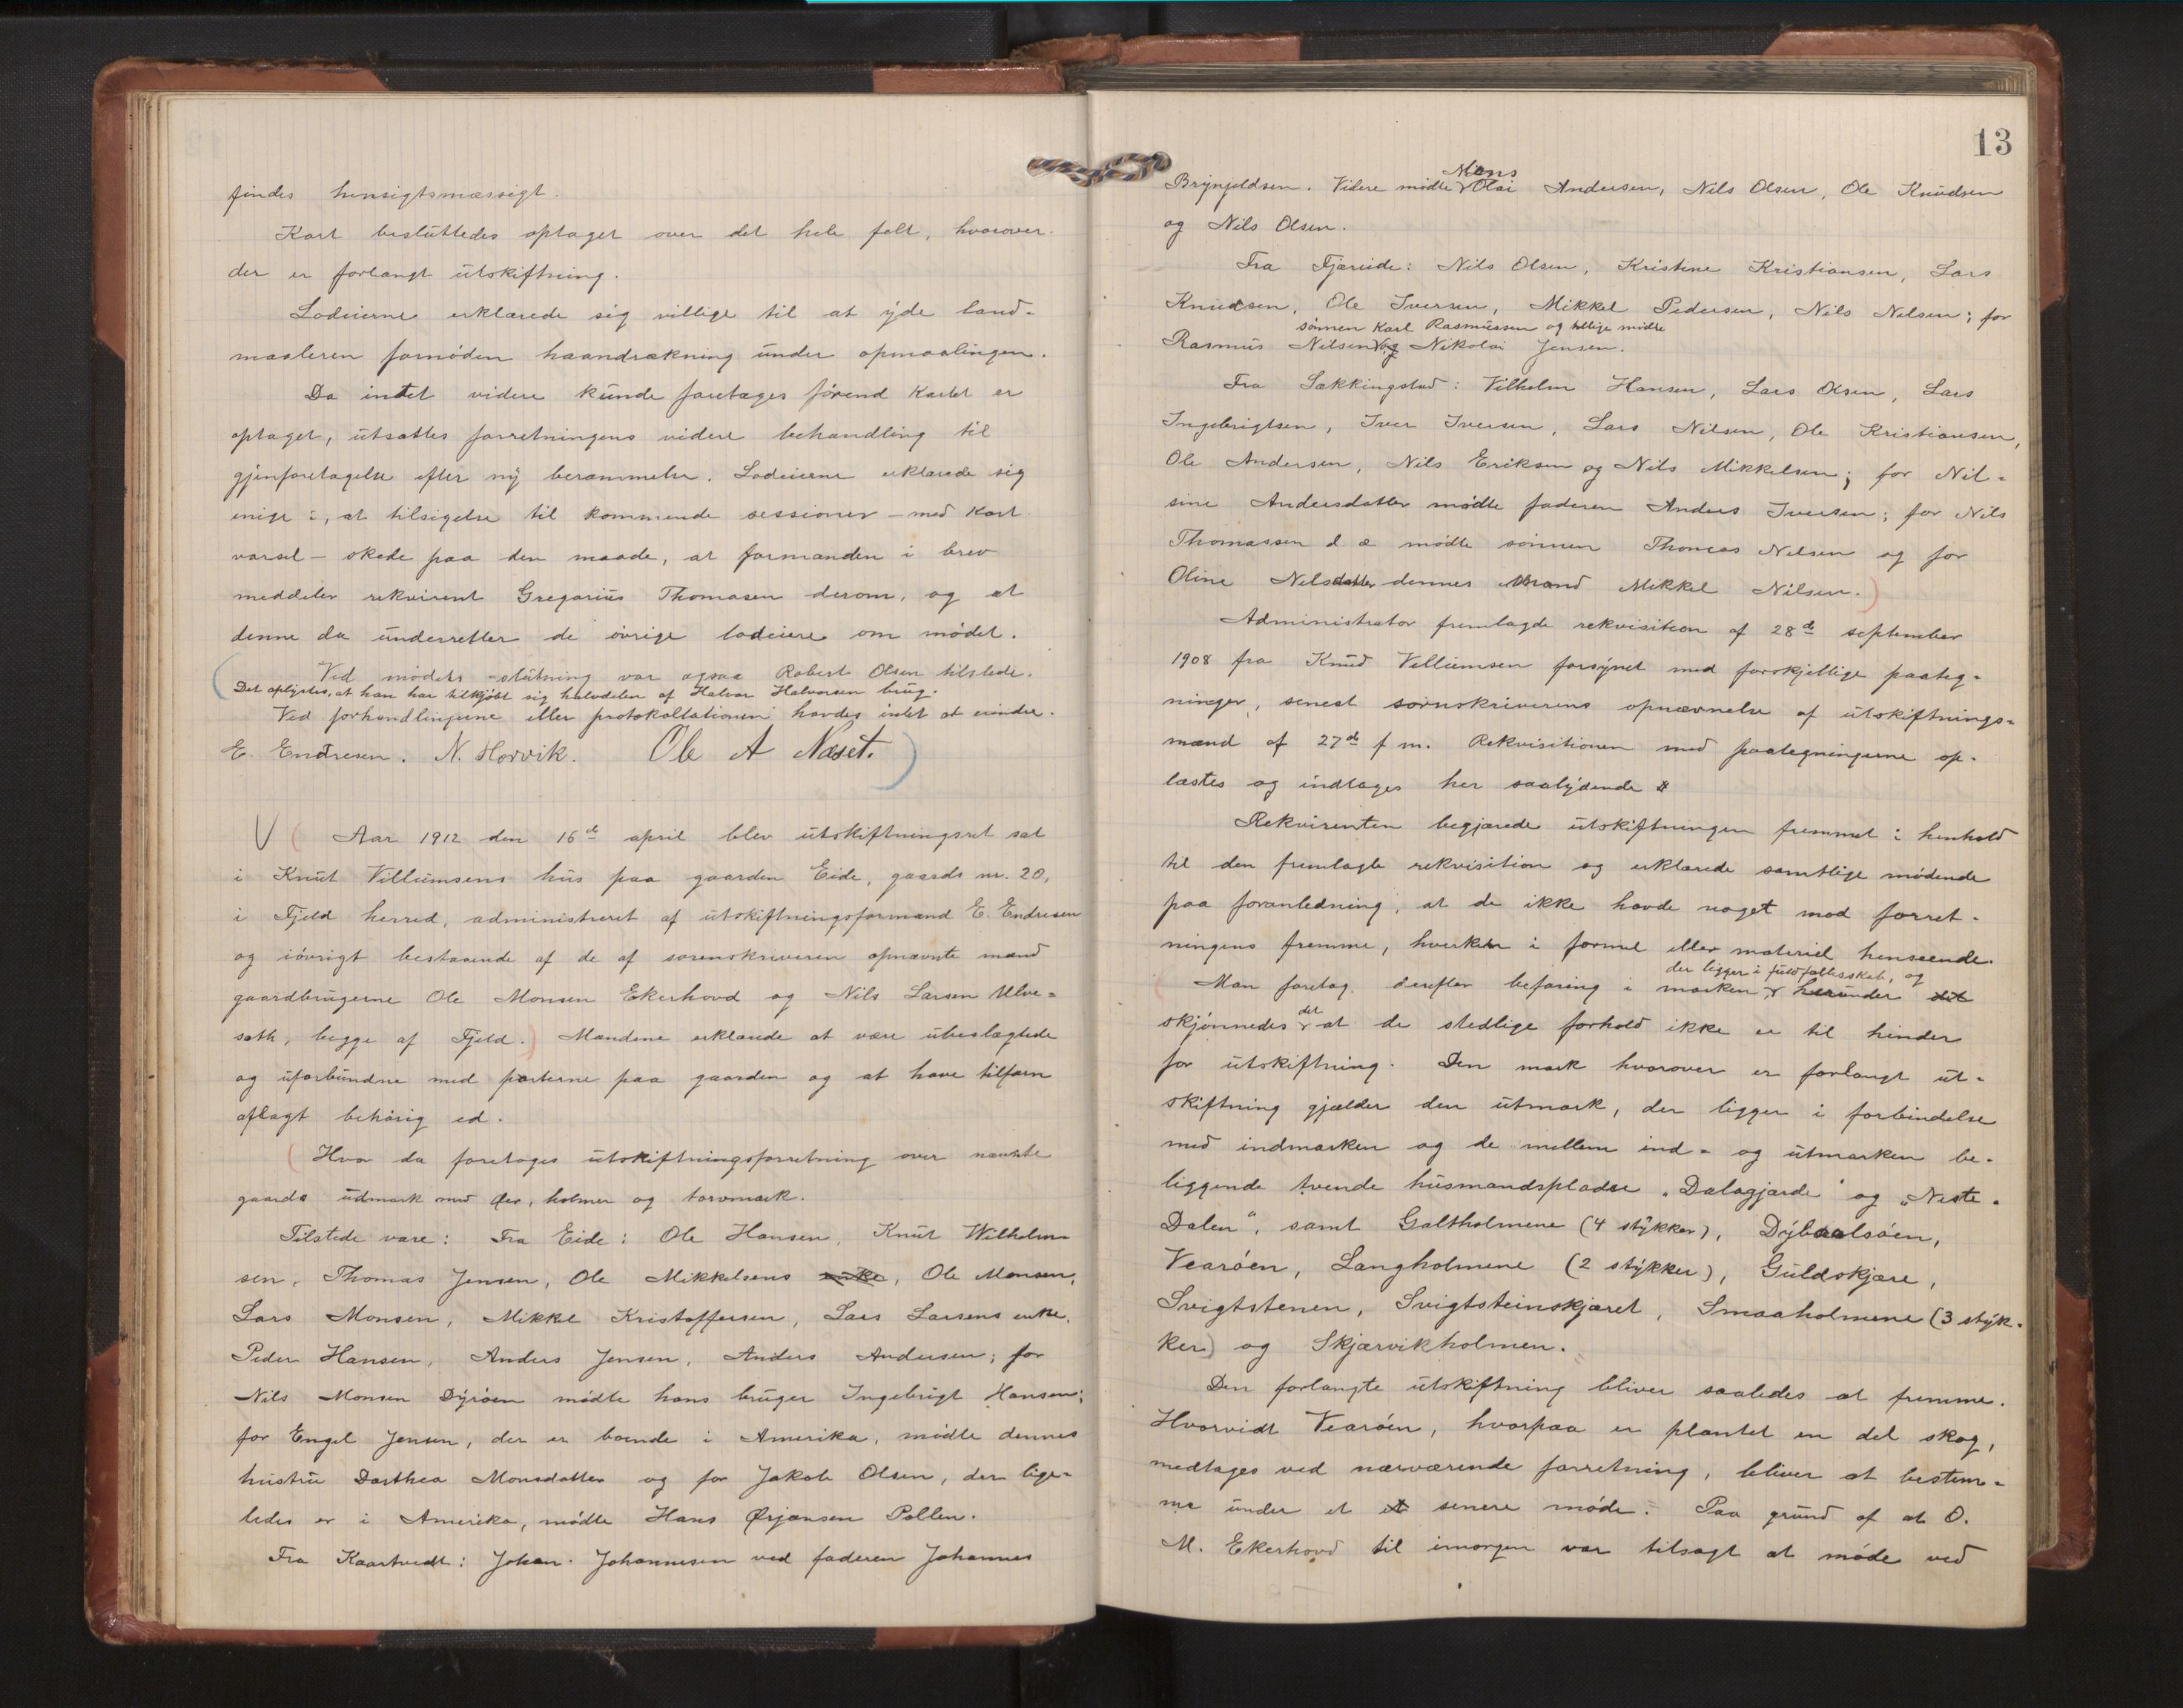 findes hensigtsmæssigt.
Kart besluttedes optaget over det hele felt, hvorover
der er forlangt utskiftning.
Lodeierne erklærede sig villige til at yde land-
maaleren fornøden haandrækning under opmaalingen.
Da intet videre kunde foretages førend kartet er
optaget, utsattes forretningens videre behandling til
gjenforetagelse efter ny berammelse. Lodeierne erklærede sig
enige i, at tilsigelse til kommende sessioner – med kort
varsel – skede paa den maade, at formanden i brev
meddeler rekvirent Gregorius Thomasen derom, og at
denne da underretter de øvrige lodeiere om mødet.
Ved mødets slutning var ogsaa Robert Olsen tilstede.
Det oplystes, at han har tilkjøbt sig halvdelen af Halvor Halvorsen brug.
Ved forhandlingerne eller protokollationen havdes intet at erindre.
E. Endresen. N. Horvik. Ole A Næset.
Aar 1912 den 16de april blev utskiftningsret sat
i Knut Villumsens hus paa gaarden Eide, gaards nr. 20,
i Fjeld herred, administreret af utskiftningsformand E. Endresen
og iøvrigt bestaaende af de af sorenskriveren opnævnte mænd
gaardbrugerne Ole Monsen Ekerhovd og Nils Larsen Ulve-
sæth, begge af Fjeld. Mændene erklærede at være ubeslægtede
og uforbundne med parterne paa gaarden og at have tilforn
aflagt behørig ed.
Hvor da foretoges utskiftningsforretning over nævnte
gaards udmark med øer, holmer og torvmark.
Tilstede vare: Fra Eide: Ole Hansen, Knut Wilhelm-
sen, Thomas Jensen, Ole Mikkelsens enke, Ole Monsen,
Lars Monsen, Mikkel Kristoffersen, Lars Larsens enke,
Peder Hansen, Anders Jensen, Anders Andersen; for
Nils Monsen Dyrøen mødte hans bruger Ingebrigt Hansen;
for Engel Jensen, der er boende i Amerika, mødte dennes
hustru Dorthea Monsdatter og for Jakob Olsen, der lige-
ledes er i Amerika, mødte Hans Ørjansen Pollen.
Fra Kaartvedt: Johan Johannesen ved faderen Johannes
13
Brynjeldsen. Videre mødte Mons Olai Andersen, Nils Olsen, Ole Knudsen
og Nils Olsen.
Fra Fjæreide: Nils Olsen, Kristine Kristiansen, Lars
Knudsen, Ole Iversen, Mikkel Pedersen, Nils Nilsen; for
sønnen Karl Rasmussen og tillige mødte
Rasmus Nilsen og Nikolai Jensen.
Fra Sækkingstad: Vilhelm Hansen, Lars Olsen, Lars
Ingebrigtsen, Iver Iversen, Lars Nilsen, Ole Kristiansen,
Ole Andersen, Nils Eriksen og Nils Mikkelsen; for Nil-
sine Andersdatter mødte faderen Anders Iversen; for Nils
Thomassen d. æ mødte sønnen Thomas Nilsen og for
Oline Nilsdatter dennes mand Mikkel Nilsen.
Administrator fremlagde rekvisition af 28de september
1908 fra Knud Villumsen forsynet med forskjellige paateg-
ninger, senest sorenskriverens opnævnelse af utskiftnings-
mænd af 27de f m. Rekvisitionen med paategningerne op-
læstes og indtages her saalydende
Rekvirenten begjærede utskiftningen fremmet i henhold
til den fremlagte rekvisition og erklærede samtlige mødende
paa foranledning, at de ikke havde noget mod forret-
ningens fremme, hverken i formel eller materiel henseende.
der ligger i fuldfællesskab, og
Man foretog derefter befaring i marken, herunder det
skjønnedes det at de stedlige forhold ikke er til hinder
for utskiftning. Den mark hvorover er forlangt ut-
skiftning gjælder den utmark, der ligger i forbindelse
med indmarken og de mellem ind- og utmarken be-
liggende tvende husmandspladse „Dalagjærde" og „Neste-
Dalen", samt Galtholmene (4 stykker), Dybaalsøen,
Vearøen, Langholmene (2 stykker), Guldskjære,
Svigtstenen, Svigtsteinskjæret, Smaaholmene (3 styk-
ker) og Skjærvikholmen.
Den forlangte utskiftning bliver saaledes at fremme.
Hvorvidt Vearøen, hvorpaa er plantet en del skog,
medtages ved nærværende forretning, bliver at bestem-
me under et senere møde. Paa grund af at O.
M. Ekerhovd til imorgen var tilsagt at møde ved